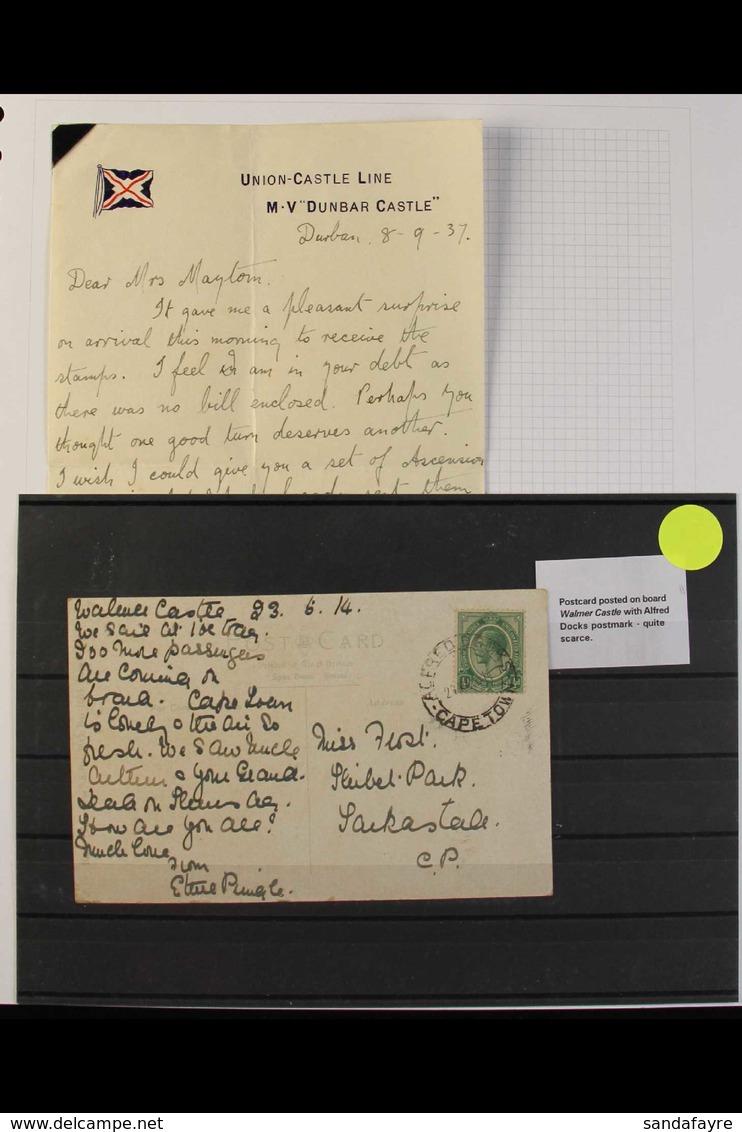 UNION-CASTLE LINE
M·V "DUNBAR CASTLE"
Durban, 8-9-37.
Dear Mrs Maytom.
It gave me a pleasant surprise
on arrival this morning to receive the
stamps. I feel I am in your debt as
there was no bill enclosed. Perhaps you
thought one good turn deserves another.
I wish I could give you a set of Ascension
sent them
Walmer Castle 23. 6. 14.
We sail at
200 more passengers
are coming on
board. Cape Town
is lovely & the air so
fresh. We saw Uncle
& your Grand-
on
How are you all?
Much love
from
Ethel Pringle.
POST CARD
Address
ALFRED
CAPE TOWN
½d
Miss Frost.
Park.
Tarkastad.
C.P.
Postcard posted on board
Walmer Castle with Alfred
Docks postmark - quite
scarce.
delcampe.net
sandafayre